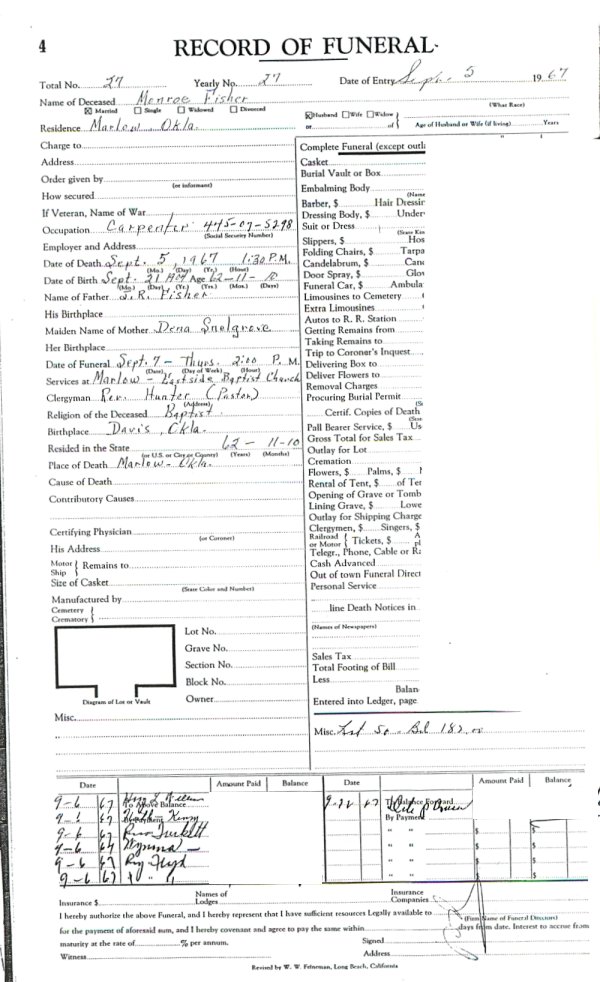 4
RECORD OF FUNERAL
Total No. 27 Yearly No. 27 Date of Entry Sept. 5 1967
Name of Deceased Monroe Fisher
(What Race)
☒ Married ☐ Single ☐ Widowed ☐ Divorced ☒ Husband ☐ Wife ☐ Widow
Residence Marlow, Okla. or of Age of Husband or Wife (if living) Years
Charge to
Address
Order given by
(or informant)
How secured
If Veteran, Name of War
Occupation Carpenter 445-07-5298
(Social Security Number)
Employer and Address
Date of Death Sept. 5, 1967 1:30 P.M.
(Mo.) (Day) (Yr.) (Hour)
Date of Birth Sept. 21 Age 62-11-
(Mo.) (Day) (Yr.) (Yrs.) (Mos.) (Days)
Name of Father J. R. Fisher
His Birthplace
Maiden Name of Mother Dena Snelgrove
Her Birthplace
Date of Funeral Sept. 7 - Thurs. 2:00 P. M.
(Date) (Day of Week) (Hour)
Services at Marlow - Eastside Baptist Church
Clergyman Rev. Hunter (Pastor)
(Address)
Religion of the Deceased Baptist
Birthplace Davis, Okla.
Resided in the State 62 - 11-10
(or U.S. or City or County) (Years) (Months)
Place of Death Marlow - Okla.
Cause of Death
Contributory Causes
Certifying Physician
(or Coroner)
His Address
Motor Ship } Remains to
Size of Casket
(State Color and Number)
Manufactured by
Cemetery Crematory }
Lot No.
Grave No.
Section No.
Block No.
Owner
Diagram of Lot or Vault
Misc.
Complete Funeral (except outl
Casket
Burial Vault or Box
Embalming Body
(Name
Barber, $ Hair Dressin
Dressing Body, $ Under
Suit or Dress
(State Kin
Slippers, $ Hos
Folding Chairs, $ Tarpa
Candelabrum, $ Canc
Door Spray, $ Glov
Funeral Car, $ Ambula
Limousines to Cemetery
Extra Limousines
Autos to R. R. Station
Getting Remains from
Taking Remains to
Trip to Coroner's Inquest
Delivering Box to
Deliver Flowers to
Removal Charges
Procuring Burial Permit
Certif. Copies of Death
Pall Bearer Service, $ Us
Gross Total for Sales Tax
Outlay for Lot
Cremation
Flowers, $ Palms, $
Rental of Tent, $ of Ter
Opening of Grave or Tomb
Lining Grave, $ Lowe
Outlay for Shipping Charge
Clergymen, $ Singers, $
Railroad or Motor { Tickets, $
Telegr., Phone, Cable or Ra
Cash Advanced
Out of town Funeral Direct
Personal Service
line Death Notices in
(Names of Newspapers)
Sales Tax
Total Footing of Bill
Less
Balan
Entered into Ledger, page
Misc.
Date Amount Paid Balance Date Amount Paid Balance
9-6 67 To Above Balance 9-22 67 To Balance Forward
67 By Payment
9-6 67 Tuckett " "
9-6 67 Wynema " "
9-6 67 Ray Floyd " "
9-6 67 " " " "
Insurance $ Names of Lodges Insurance Companies
I hereby authorize the above Funeral, and I hereby represent that I have sufficient resources Legally available to
(Firm Name of Funeral Directors)
for the payment of aforesaid sum, and I hereby covenant and agree to pay the same within days from date. Interest to accrue from
maturity at the rate of % per annum. Signed
Witness Address
Revised by W. W. Feineman, Long Beach, California